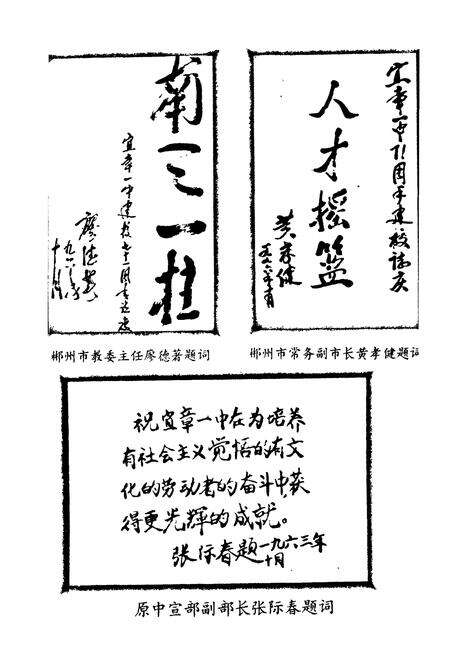 南天一柱
宜章一中建校七十一周年志庆
廖德著
一九九六年
十月
郴州市教委主任廖德著题词
宜章一中71周年建校志庆
人才摇篮
黄孝健
郴州市常务副市长黄孝健题词
祝宜章一中在为培养
有社会主义觉悟的有文
化的劳动者的奋斗中,获
得更光辉的成就。
张际春题一九六三年
十月
原中宣部副部长张际春题词